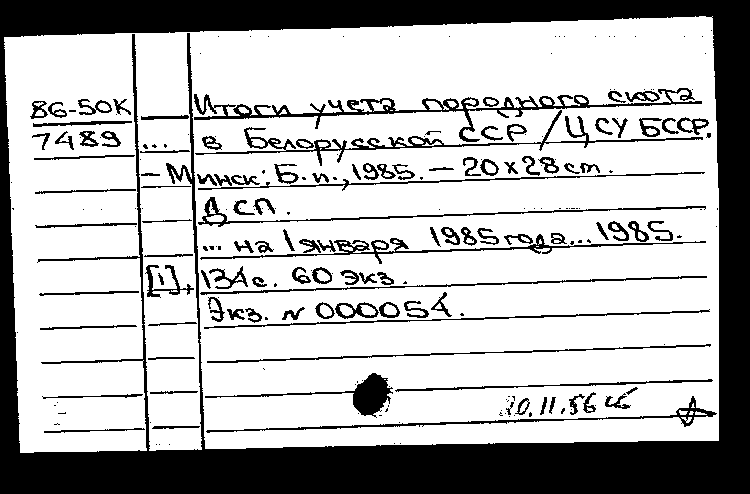 86-50К Итоги учета породного скота
7489 ... в Белорусской ССР / ЦСУ БССР.
– Минск: Б.и., 1985. – 20×28 cm.
ДСП.
... на 1 января 1985 года... 1985.
[1], 134 с. 60 экз.
Экз. № 000054.